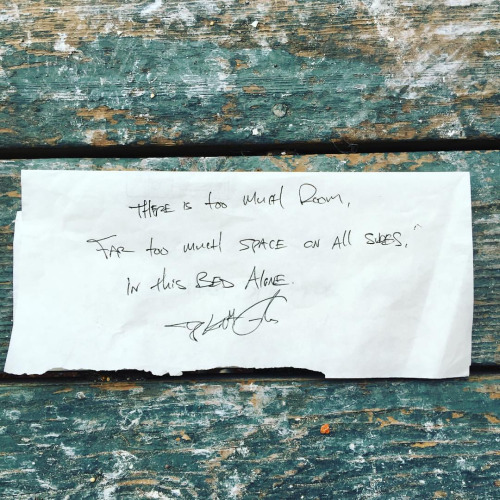 There is too much Room,
Far too much space on all sides,
In this Bed Alone.